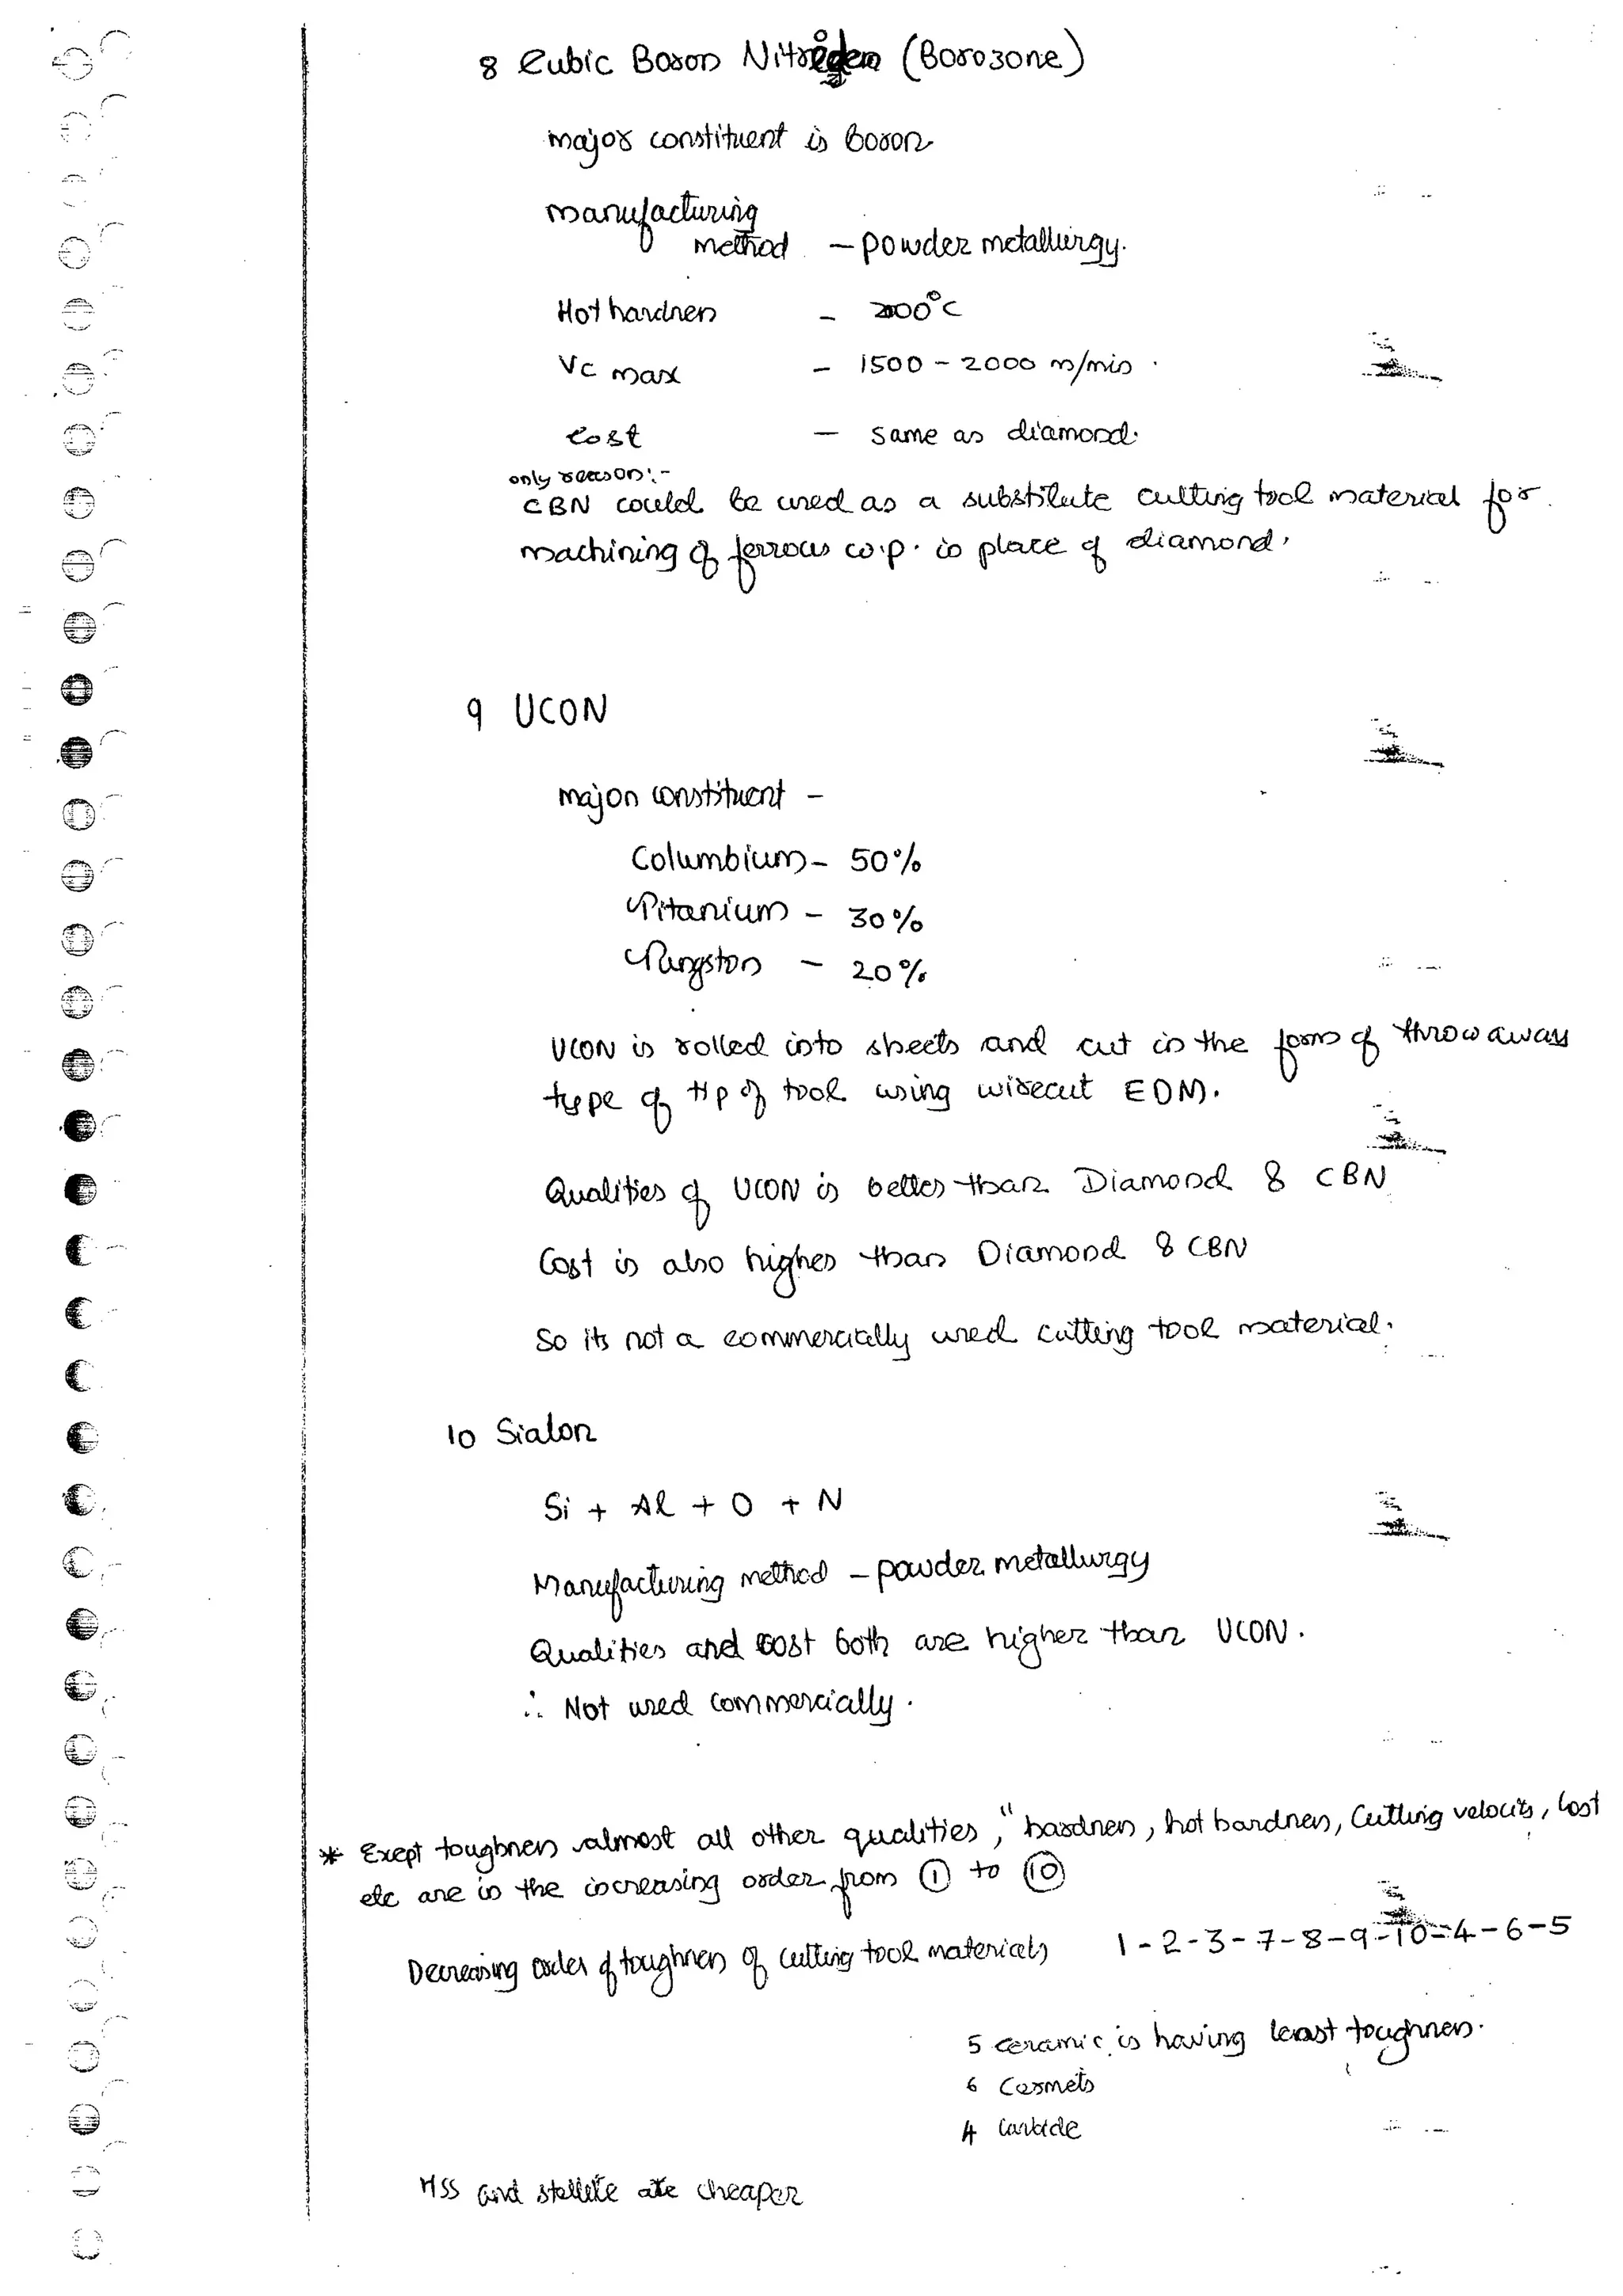 8 Cubic Boron Nitride (Borozone)
major constituent is Boron
manufacturing
method - powder metallurgy.
Hot hardness - 2000°C
Vc max - 1500 - 2000 m/min.
Cost - same as diamond.
only reason:-
CBN could be used as a substitute cutting tool material for
machining of ferrous w.p. in place of diamond.
9 UCON
major constituent -
Columbium - 50%
Titanium - 30%
Tungston - 20%
UCON is rolled into sheets and cut in the form of throw away
type of tip of tool using wirecut EDM.
Qualities of UCON is better than Diamond & CBN
Cost is also higher than Diamond & CBN
So its not a commercially used cutting tool material.
10 Sialon
Si + Al + O + N
Manufacturing method - powder metallurgy
Qualities and cost both are higher than UCON.
∴ Not used commercially.
* Exept toughness almost all other qualities, "hardness, hot hardness, Cutting velocity, Cost
etc are in the increasing order from ① to ⑩
Decreasing order of toughness of cutting tool materials 1-2-3-7-8-9-10-4-6-5
5 ceramic is having least toughness.
6 Cermets
4 Carbide
HSS and stellite are cheaper